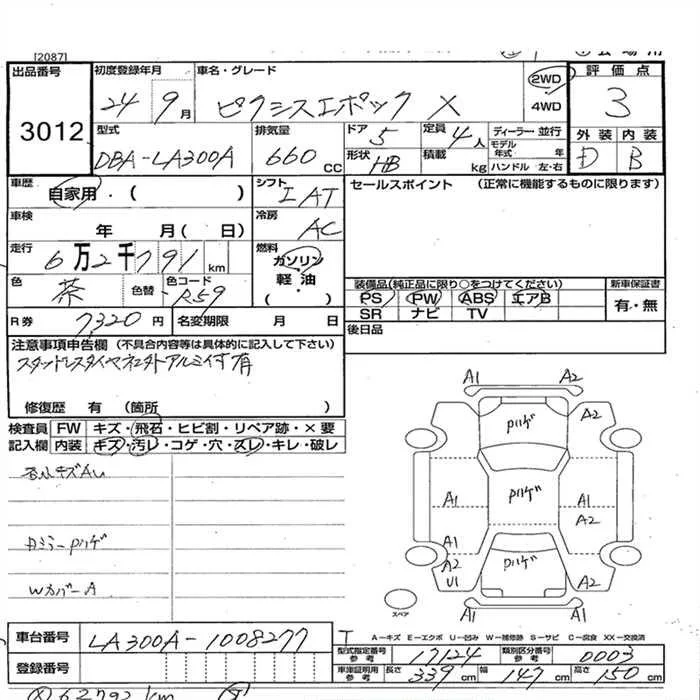 [2087]
出品番号 初度登録年月 車名・グレード 2WD 評価点
3012 24 9月 ピクシスエポック X 4WD 3
型式 排気量 ドア 5 定員 4人 ディーラー・並行 外装 内装
DBA-LA300A 660cc 形状 HB 積載 kg モデル年式 年 D B
ハンドル 左・右
車歴 自家用・( ) シフト IAT セールスポイント (正常に機能するものに限ります)
車検 年 月( 日) 冷房 AC
走行 6万2千791km 燃料 ガソリン
軽・油
( )
色 茶 色替 色コード R59 装備品(純正品に限り○をつけてください) 新車保証書
PS PW ABS エアB 有・無
SR ナビ TV
R券 7320円 名変期限 月 日 後日品
注意事項申告欄 (不具合内容等は具体的に記入して下さい)
有
修復歴 有 (箇所 )
検査員記入欄 FW キズ・飛石・ヒビ割・リペア跡・×要
内装 キズ・汚レ・コゲ・穴・スレ・キレ・破レ
キズ
ミラーPハゲ
WカバーA
A1 A2
Pハゲ
A1 Pハゲ A1
A2
A1
A2 Pハゲ
U1 A2
A1 A2
スペア
A-キズ E-エクボ U-凹み W-補修跡 S-サビ C-腐食 XX-交換済
車台番号 LA300A-1008277
型式指定番号 参考 17124 類別区分番号 参考 0003
登録番号
車庫証明用 参考 長さ 339cm 幅 147cm 高さ 150cm
62792 km